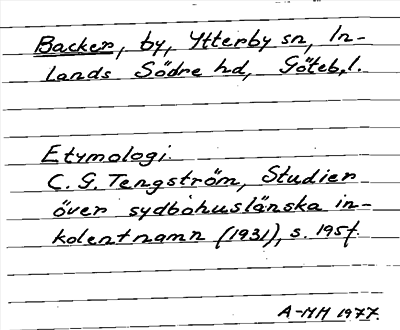 Backer, by, Ytterby sn, In-
lands Södre hd, Göteb.l.
Etymologi.
C. G. Tengström, Studier
över sydbohuslänska in-
kolentnamn (1931), s. 195f.
A-MH 1977.